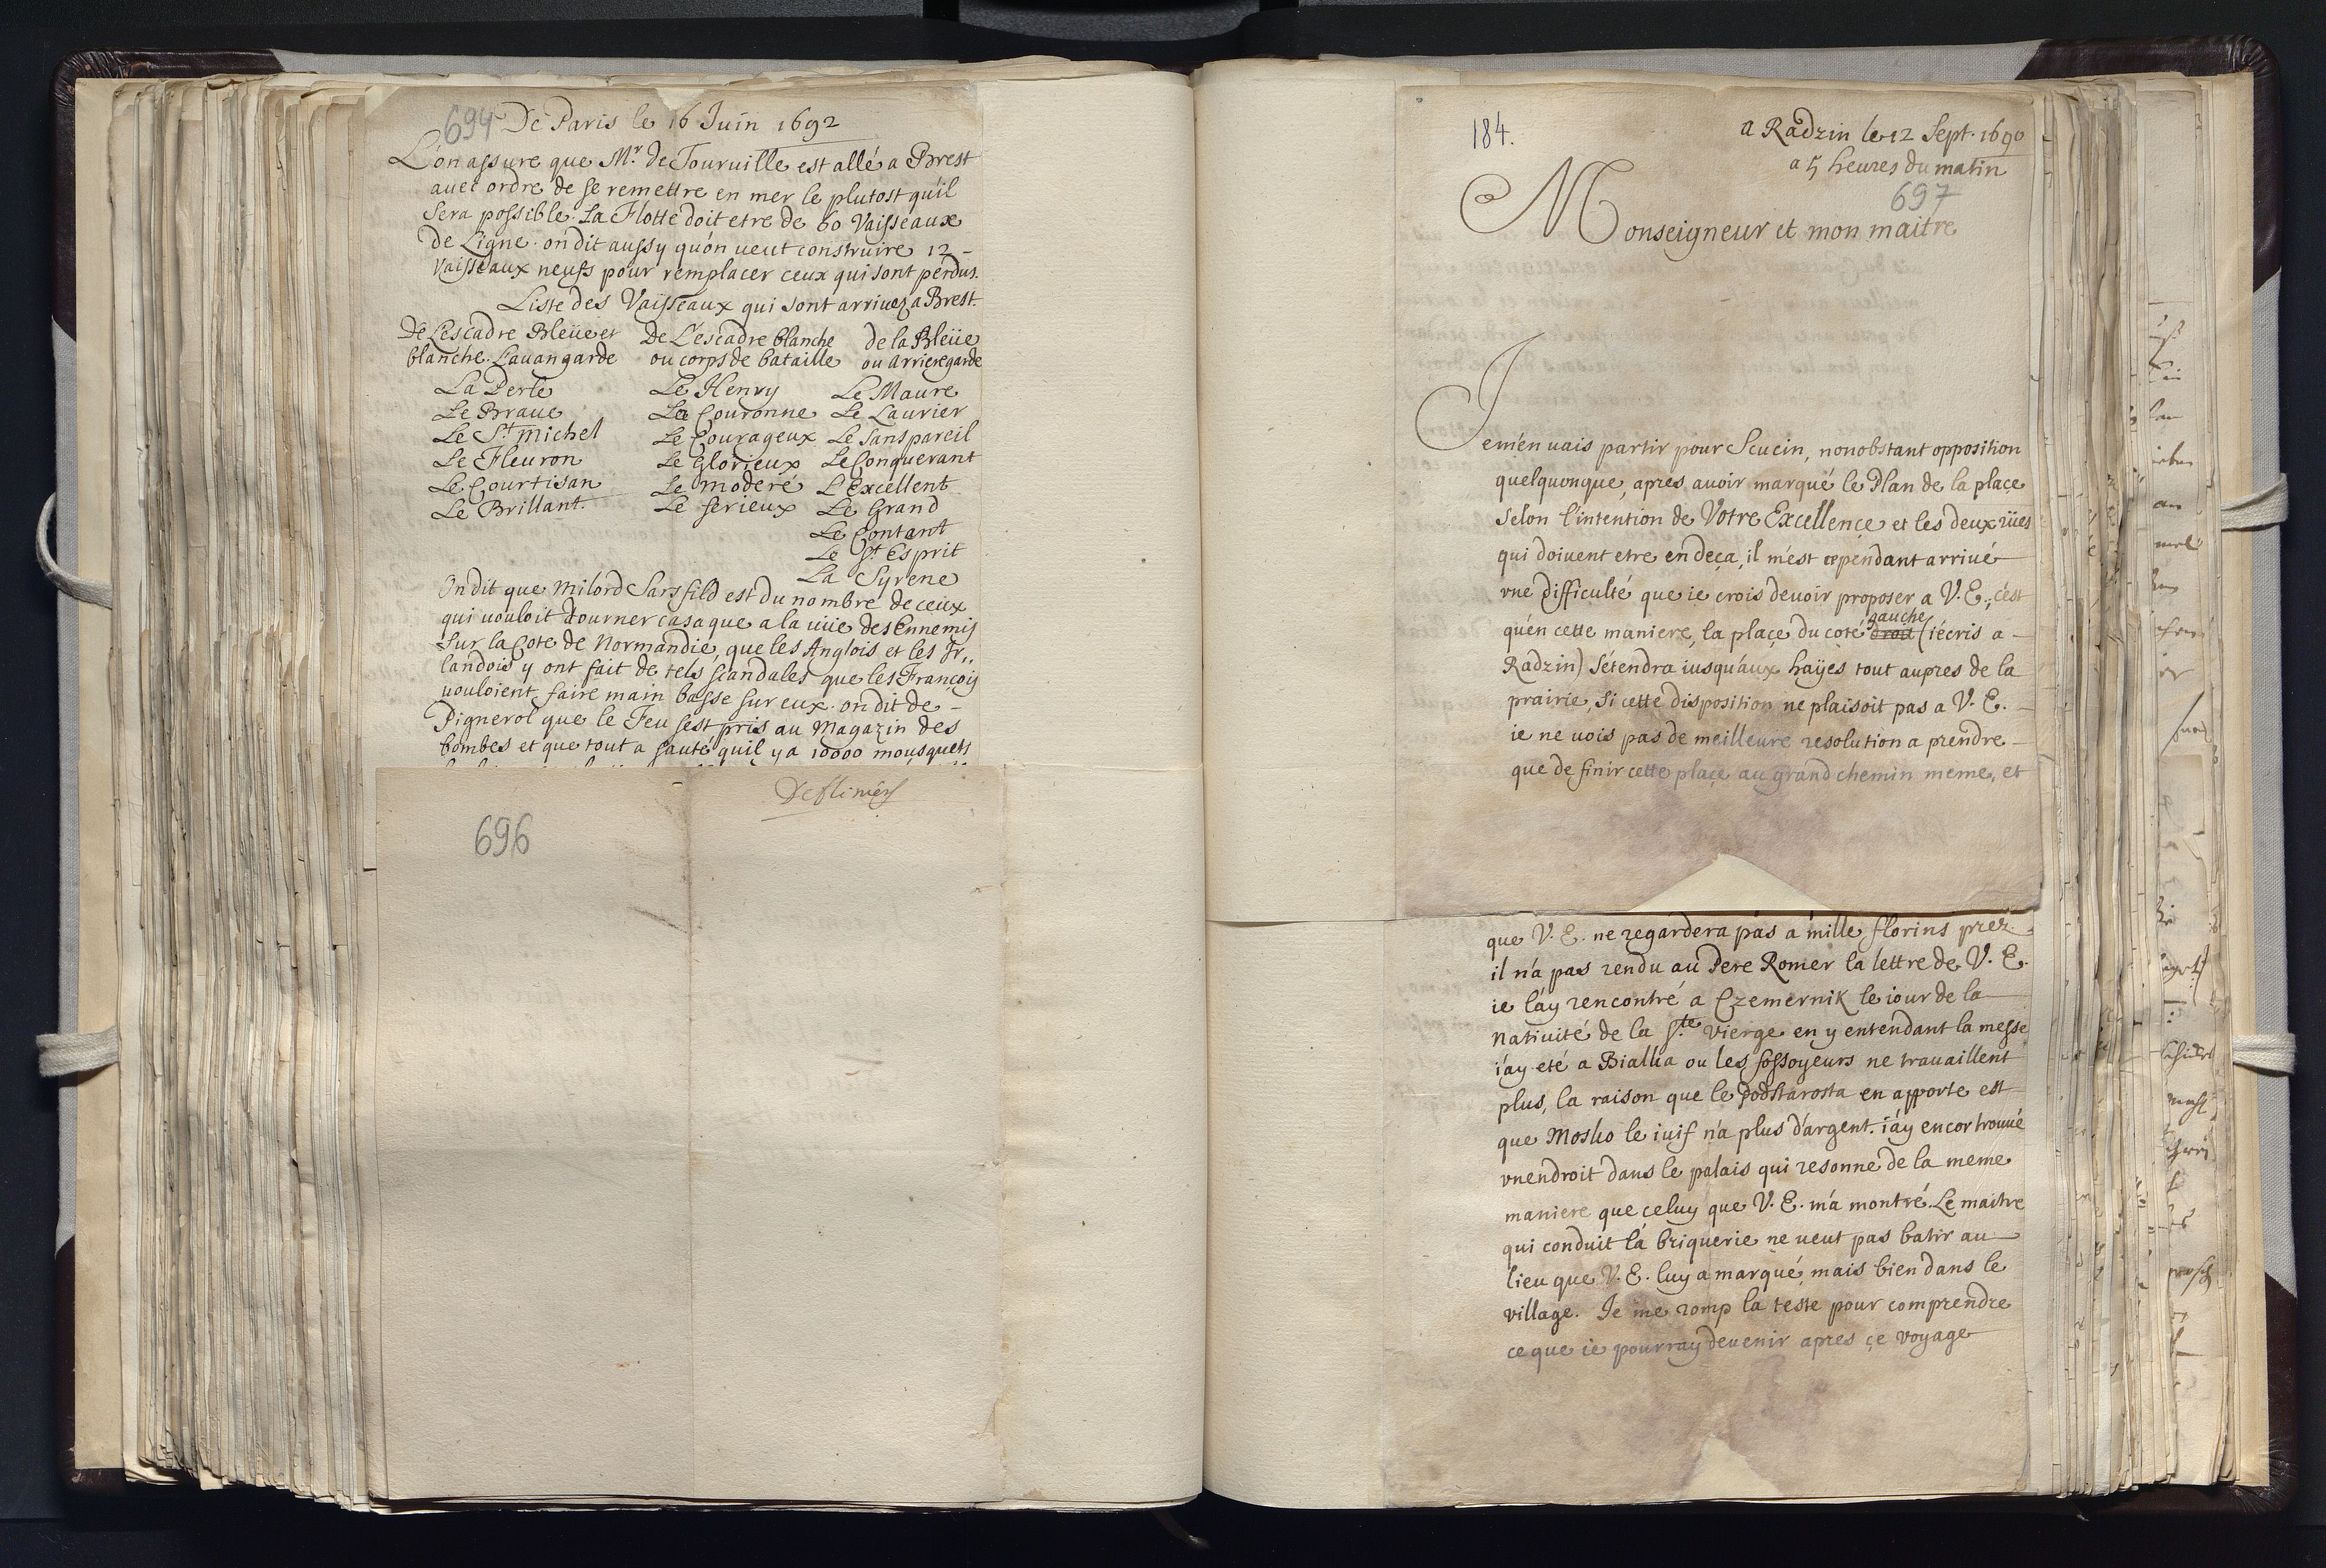 694 De Paris le 16 Juin 1692
L'on assure que Mr. de Tourville est allé a Brest
avec ordre de se remettre en mer le plutost qu'il
sera possible. La Flotte doit etre de 60 Vaisseaux
de Ligne. on dit aussy qu'on veut construire 12 -
Vaisseaux neufs pour remplacer ceux qui sont perdus.
Liste des Vaisseaux qui sont arrivez a Brest.
De L'escadre Bleüe et
blanche. Lavangarde
La Perle
Le Brave
Le St. michel
Le Fleuron
Le Courtisan
Le Brillant.
De L'escadre blanche
ou corps de bataille
Le Henry
La Couronne
Le Courageux
Le Glorieux
Le moderé
Le serieux
de la Bleüe
ou arrieregarde
Le Maure
Le Laurier
Le Sanspareil
Le Conquerant
L'Excellent
Le Grand
Le Contant
Le St Esprit
La Syrene
On dit que Milord Sarsfild est du nombre de ceux
qui vouloit tourner casaque a la vüe des Ennemis
sur la Cote de Normandie, que les Anglois et les Ir,,
landois y ont fait de tels scandales que les François
vouloient faire main basse sur eux. on dit de -
Pignerol que le Feu s'est pris au Magazin des
bombes et que tout a sauté qu'il y a 10000 mousquets
696
184.
a Radzin le 12 Sept. 1690
a 5 heures du matin
697
Monseigneur et mon maitre
Je m'en vais partir pour Scucin, nonobstant opposition
quelquonque, apres avoir marqué le Plan de la place
selon l'intention de Votre Excellence et les deux rües
qui doivent etre en deça, il m'est cependant arrivé
vne difficulté que ie crois devoir proposer a V. E., c'est
gauche
qu'en cette maniere, la place du coté droit (i'écris a -
Radzin) s'étendra iusqu'aux hayes tout aupres de la
prairie, si cette disposition ne plaisoit pas a V. E. -
ie ne vois pas de meilleure resolution a prendre -
que de finir cette place au grand chemin meme, et
que V. E. ne regardera pas a mille florins prez.
il n'a pas rendu au Pere Romer la lettre de V. E.
ie l'ay rencontré a Czemernik le iour de la
Nativité de la Ste. Vierge en y entendant la messe
i'ay eté a Bialla ou les fossoyeurs ne travaillent
plus, la raison que le Podstarosta en apporte est
que Mosko le iuif n'a plus d'argent. i'ay encor trouvé
vnendroit dans le palais qui resonne de la meme
maniere que celuy que V. E. m'a montré. Le maitre
qui conduit la briquerie ne veut pas batir au
lieu que V. E. luy a marqué, mais bien dans le
village. Je me romp la teste pour comprendre
ce que ie pourray devenir apres ce voyage